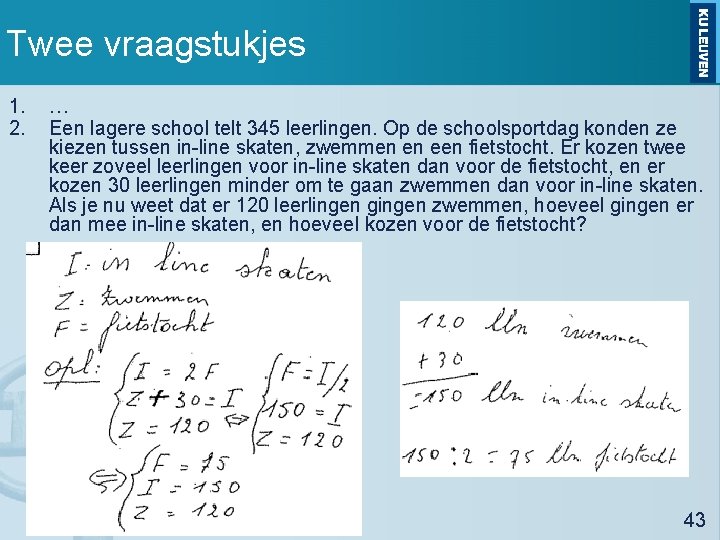 KU LEUVEN
Twee vraagstukjes
1. …
2. Een lagere school telt 345 leerlingen. Op de schoolsportdag konden ze
kiezen tussen in-line skaten, zwemmen en een fietstocht. Er kozen twee
keer zoveel leerlingen voor in-line skaten dan voor de fietstocht, en er
kozen 30 leerlingen minder om te gaan zwemmen dan voor in-line skaten.
Als je nu weet dat er 120 leerlingen gingen zwemmen, hoeveel gingen er
dan mee in-line skaten, en hoeveel kozen voor de fietstocht?
I: in line skaten
Z: zwemmen
F = fietstocht
opl: { I = 2F { F = I/2
Z + 30 = I ⇔ 150 = I
Z = 120 Z = 120
⇔ { F = 75
I = 150
Z = 120
120 lln zwemmen
+ 30
= 150 lln in-line skaten
150 : 2 = 75 lln fietstocht
43